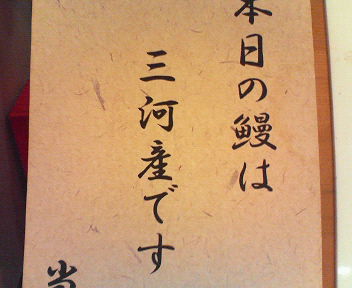 本日の鰻は
三河産です
当